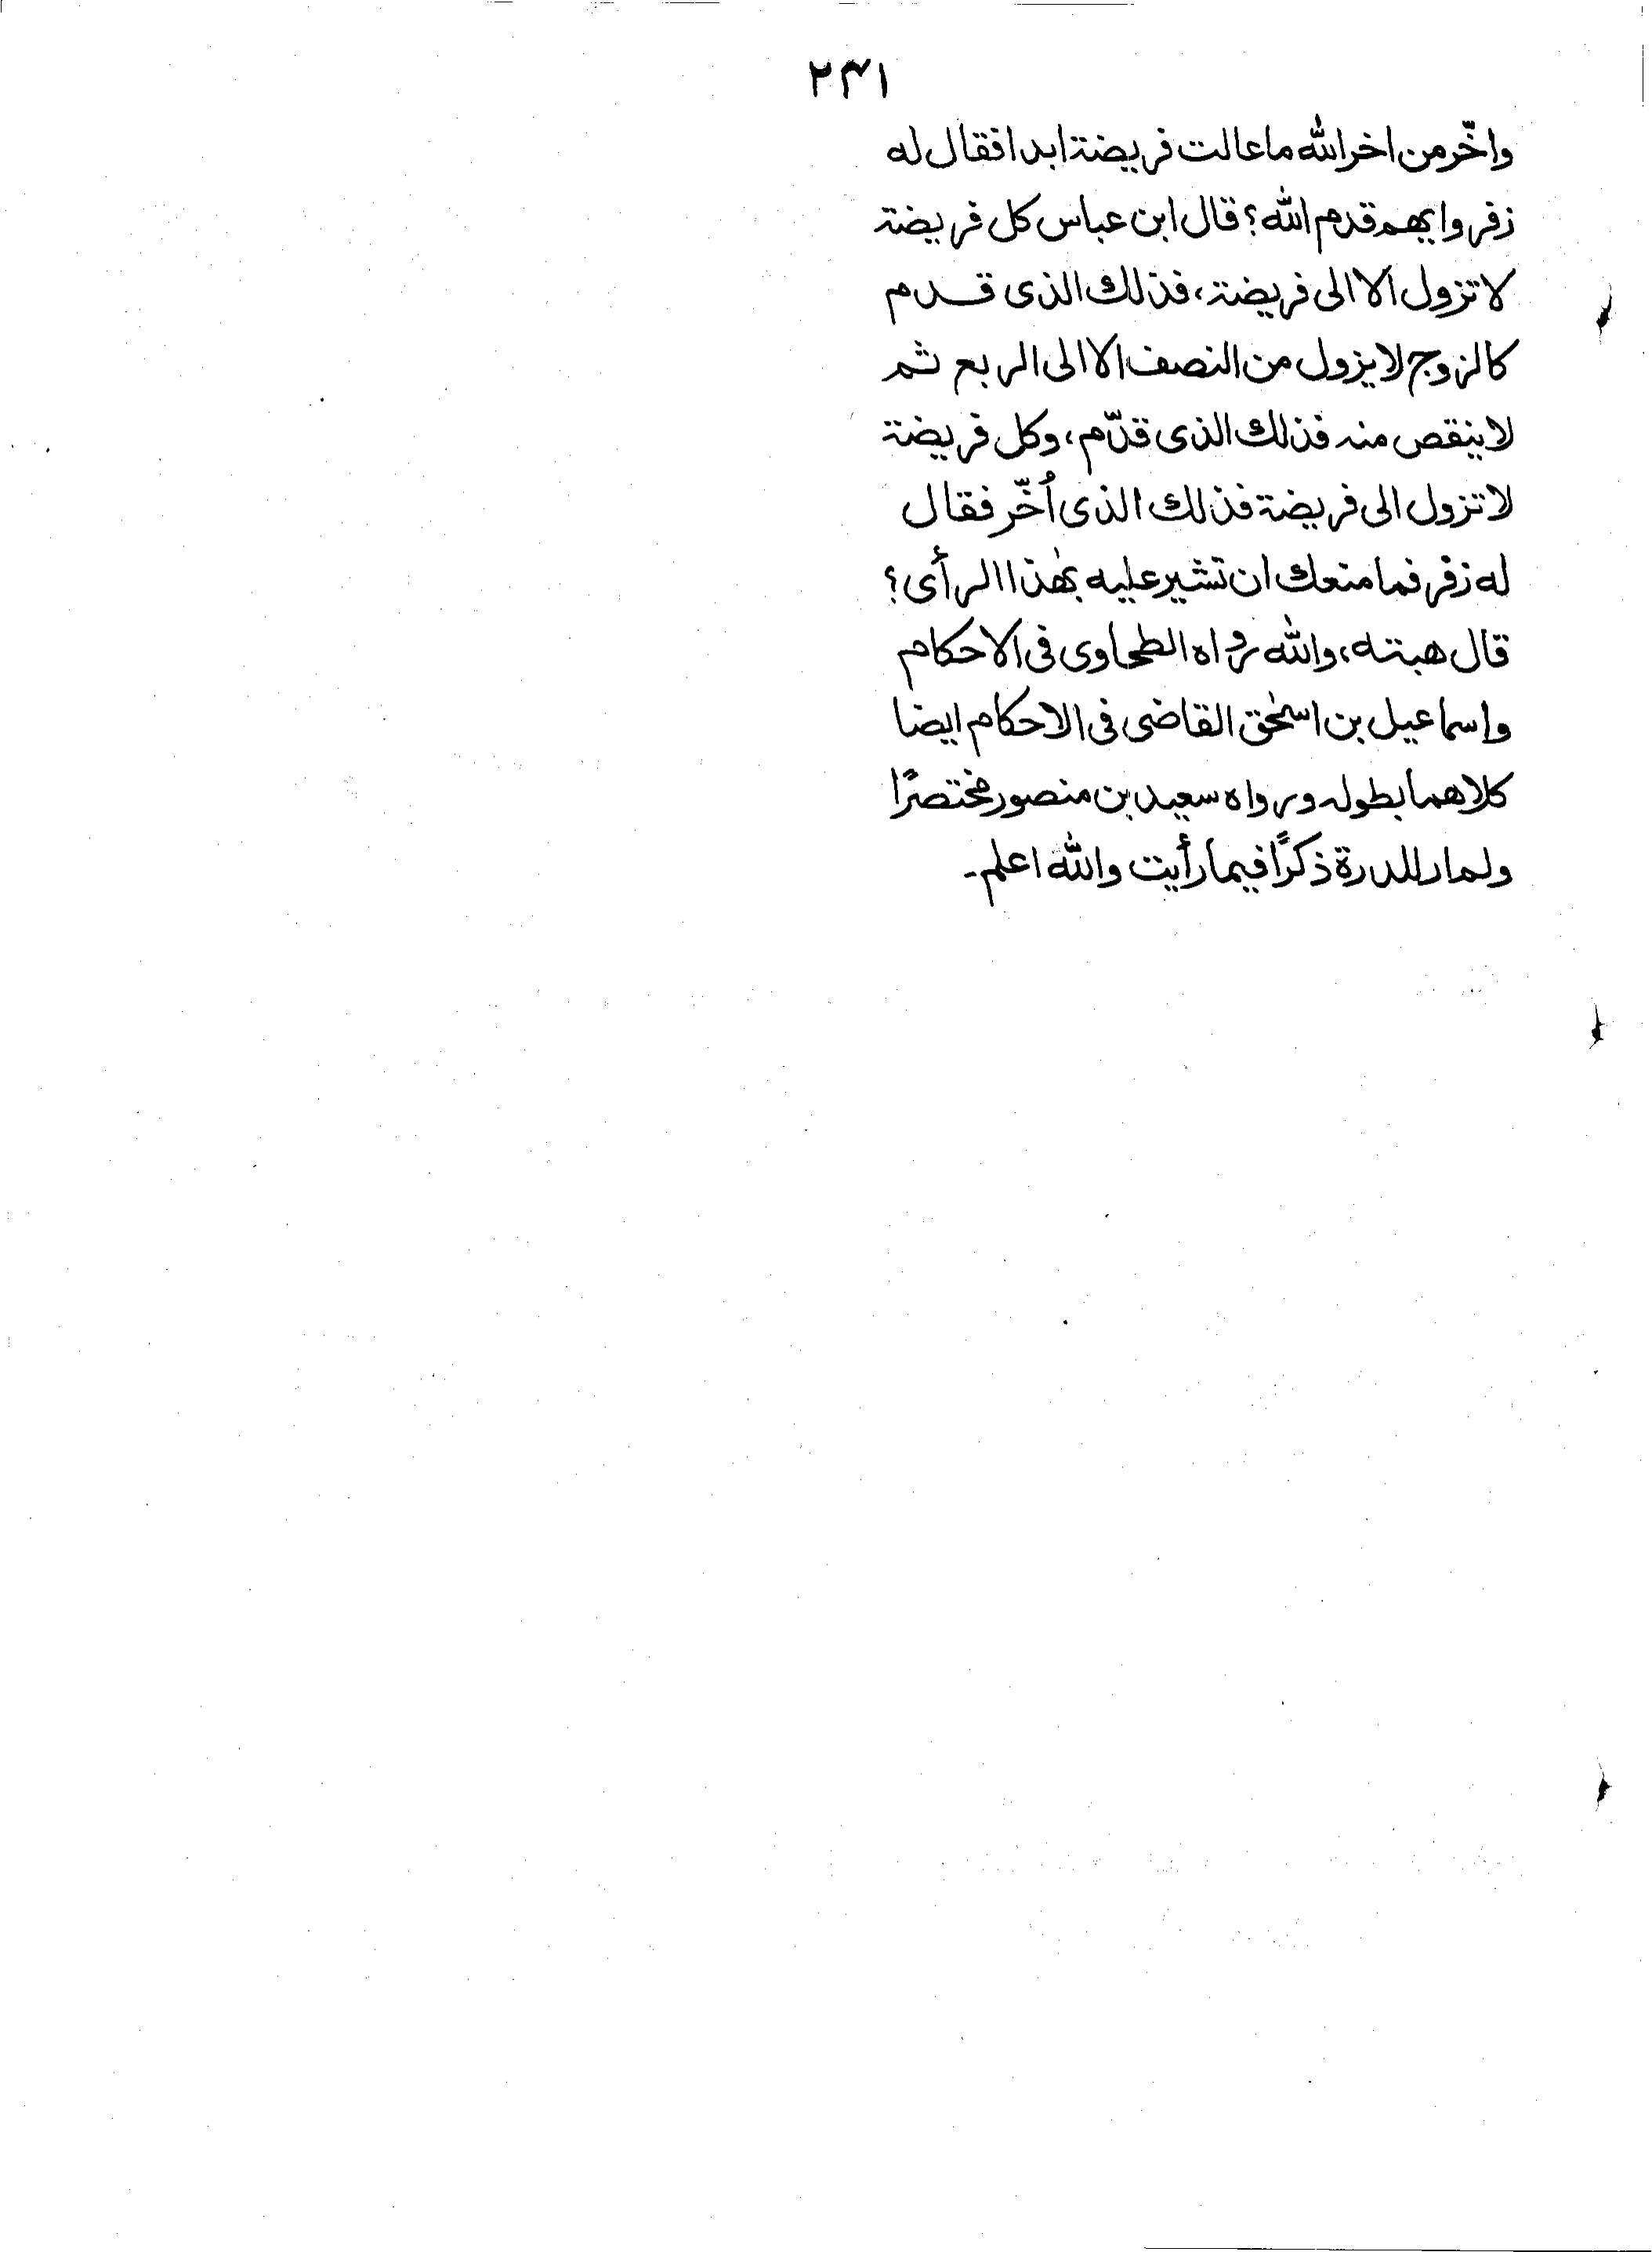 ۲۴۱
واخّر من اخر الله ما عالت فريضة ابدا فقال له
زفر وايهم قدم الله؟ قال ابن عباس كل فريضة
لا تزول الا الى فريضة، فذلك الذى قدم
كالزوج لا يزول من النصف الا الى الربع ثم
لا ينقص منه فذلك الذى قدّم، وكل فريضة
لا تزول الى فريضة فذلك الذى اُخّر فقال
له زفر فما منعك ان تشير عليه بهٰذا الرأى؟
قال هبته، والله رواه الطحاوى فى الاحكام
واسماعيل بن اسحٰق القاضى فى الاحكام ايضا
كلاهما بطوله ورواه سعيد بن منصور مختصرًا
ولم ار للدرة ذكرًا فيما رأيت والله اعلم۔